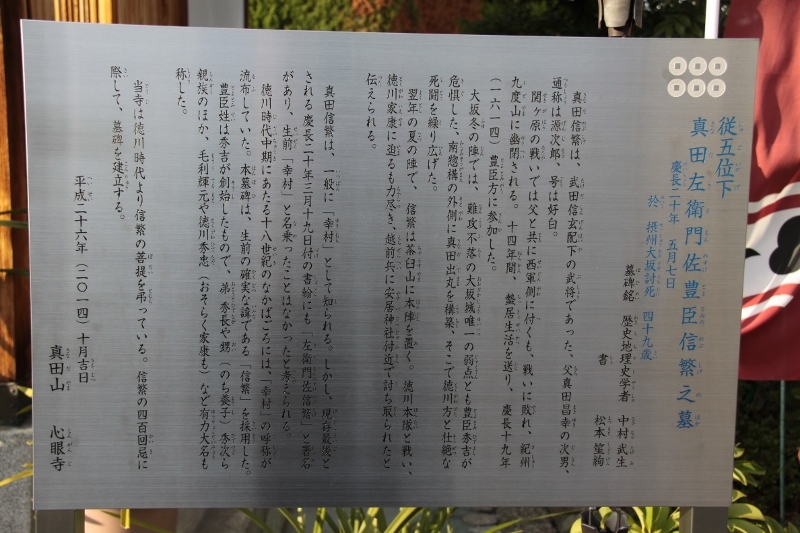 従五位下
真田左衛門佐豊臣信繁之墓
慶長二十年 五月七日
於 摂州大坂討死 四十九歳
墓碑銘 歴史地理史学者 中村 武生
書 松本 笙絢
真田信繁は、武田信玄配下の武将であった、父真田昌幸の次男、
通称は源次郎、号は好白。
関ヶ原の戦いでは父と共に西軍側に付くも、戦いに敗れ、紀州
九度山に幽閉される。十四年間、蟄居生活を送り、慶長十九年
(一六一四)豊臣方に参加した。
大坂冬の陣では、難攻不落の大坂城唯一の弱点とも豊臣秀吉が
危惧した、南惣構の外側に真田出丸を構築、そこで徳川方と壮絶な
死闘を繰り広げた。
翌年の夏の陣で、信繁は茶臼山に本陣を置く。徳川本隊と戦い、
徳川家康に迫るも力尽き、越前兵に安居神社付近で討ち取られたと
伝えられる。
真田信繁は、一般に「幸村」として知られる。しかし、現存最後と
される慶長二十年三月十九日付の書絵にも「左衛門佐信繁」と署名
があり、生前「幸村」と名乗ったことはなかったと考えられる。
徳川時代中期にあたる十八世紀のなかばごろには、「幸村」の呼称が
流布していた。本墓碑は、生前の確実な諱である「信繁」を採用した。
豊臣姓は秀吉が創始したもので、弟 秀長や甥(のち養子)秀次ら
親族のほか、毛利輝元や徳川秀忠(おそらく家康も)など有力大名も
称した。
当寺は徳川時代より信繁の菩提を弔っている。信繁の四百回忌に
際して、墓碑を建立する。
平成二十六年(二〇一四)十月吉日
真田山 心眼寺